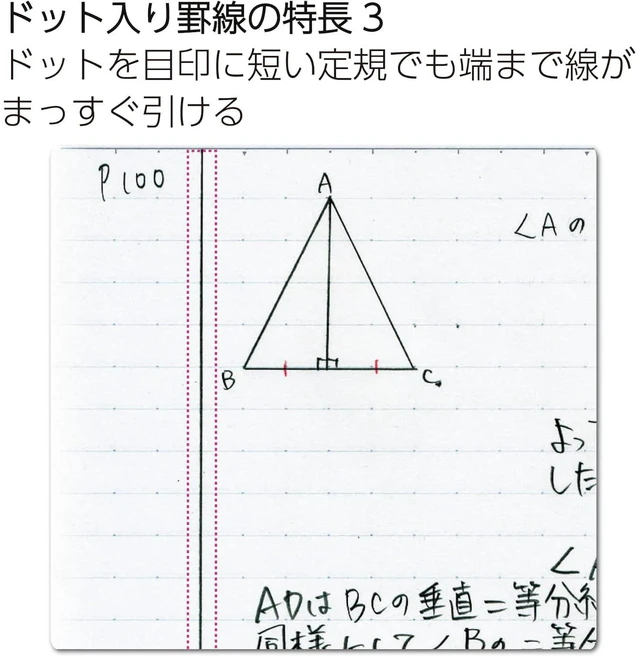 ドット入り罫線の特長3
ドットを目印に短い定規でも端まで線が
まっすぐ引ける
P100
A
∠Aの
B
C
よっ
した
∠
ADはBCの垂直二等分
同様にして∠Bの二等